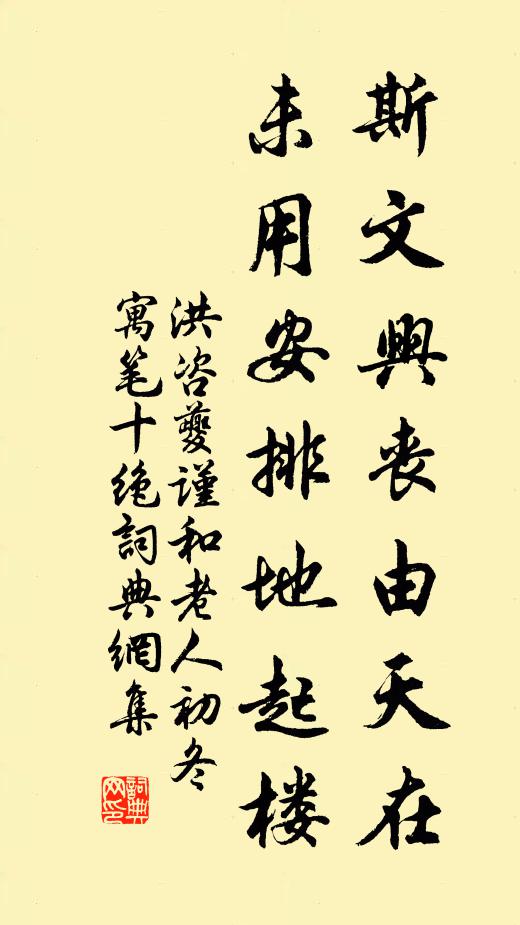 斯文興丧由天在
未用安排地起楼
洪咨夔謹和老人初冬
寓笔十绝詞典網集
詞典网印